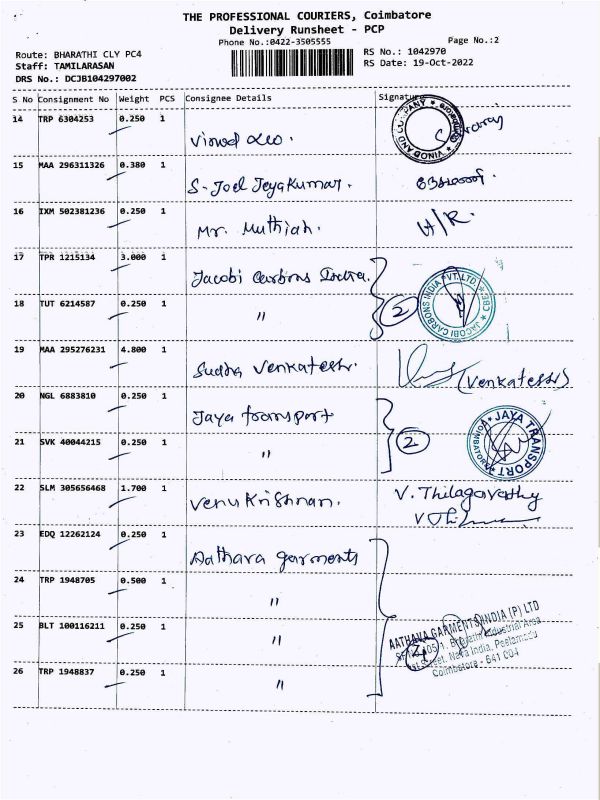 THE PROFESSIONAL COURIERS, Coimbatore
Delivery Runsheet - PCP
Phone No.:0422-3505555
Page No.:2
Route: BHARATHI CLY PC4
RS No.: 1042970
Staff: TAMILARASAN
RS Date: 19-Oct-2022
DRS No.: DCJB104297002
S No Consignment No Weight PCS Consignee Details Signature
14 TRP 6304253 0.250 1
Vinod Leo.
VINOD AND COMPANY
15 MAA 296311326 0.380 1
S-Joel Jeyakumar.
16 IXM 502381236 0.250 1
Mr. Muthiah. H/R.
17 TPR 1215134 3.000 1
Jacobi Carbons India.
JACOBI CARBONS INDIA PVT. LTD. CBE
18 TUT 6214587 0.250 1
" 2
19 MAA 295276231 4.800 1
Sudha Venkatesh. (Venkatesh)
20 NGL 6883810 0.250 1
Jaya transport
JAYA TRANSPORT COIMBATORE
21 SVK 40044215 0.250 1
" 2
22 SLM 305656468 1.700 1
Venu Krishnan. V. Thilagavathy
23 EDQ 12262124 0.250 1
Aathava garments
24 TRP 1948705 0.500 1
"
25 BLT 100116211 0.250 1
"
AATHAVA GARMENTS INDIA (P) LTD
Industrial Area
Street, Nava India, Peelamedu
Coimbatore - 641 004
4
26 TRP 1948837 0.250 1
"